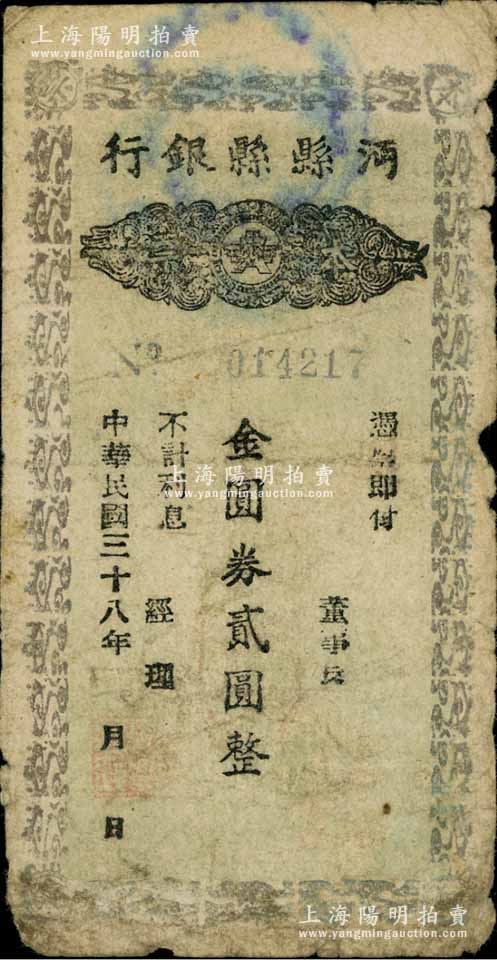 上海陽明拍賣
www.yangmingauction.com
沔縣縣銀行
Nº 014217
憑票即付
董事長
金圓券貳圓整
不計利息
經理
中華民國三十八年 月 日
上海陽明拍賣
www.yangmingauction.com
上海陽明拍賣
www.yangmingauction.com